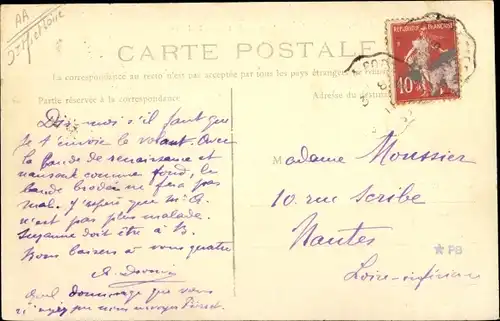 AA
CARTE POSTALE
La correspondance au recto n'est pas acceptée par tous les pays étrangers
Partie réservée à la correspondance
Adresse du destina
REPUBLIQUE FRANÇAISE
10
Dis-moi s'il faut que
je t'envoie le volant. Avec
la bande de renaissance et
nansouk comme fond, la
bande brodée ne fera pas
mal. J'espère que Mr A.
n'est pas plus malade.
Suzanne doit être à B.
Bons baisers à vous quatre
Quel dommage que vous
n'ayez pu nous
Madame Moussier
10 rue Scribe
Nantes
Loire-inférieure
PB